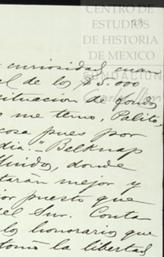 CENTRO DE
ESTUDIOS
DE HISTORIA
DE MEXICO
FUNDACIÓN
curiosidad, con
al de los $5.000
situacion de fondos
me temo, Palito
cosa pues por
dia." Belknap
Unidos, donde
tarán mejor y
jor puesto que
del Sur. Conta
los honorarios que
tomo la libertad